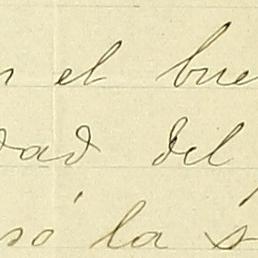 el bue
dad del
só la s